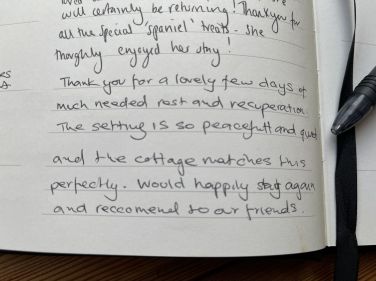 will certainly be returning! Thankyou for
all the special 'spaniel' treats - she
thoroghly enjoyed her stay!
Thank you for a lovely few days of
much needed rest and recuperation.
The setting is so peacefull and quiet
and the cottage matches this
perfectly. Would happily stay again
and reccomend to our friends.